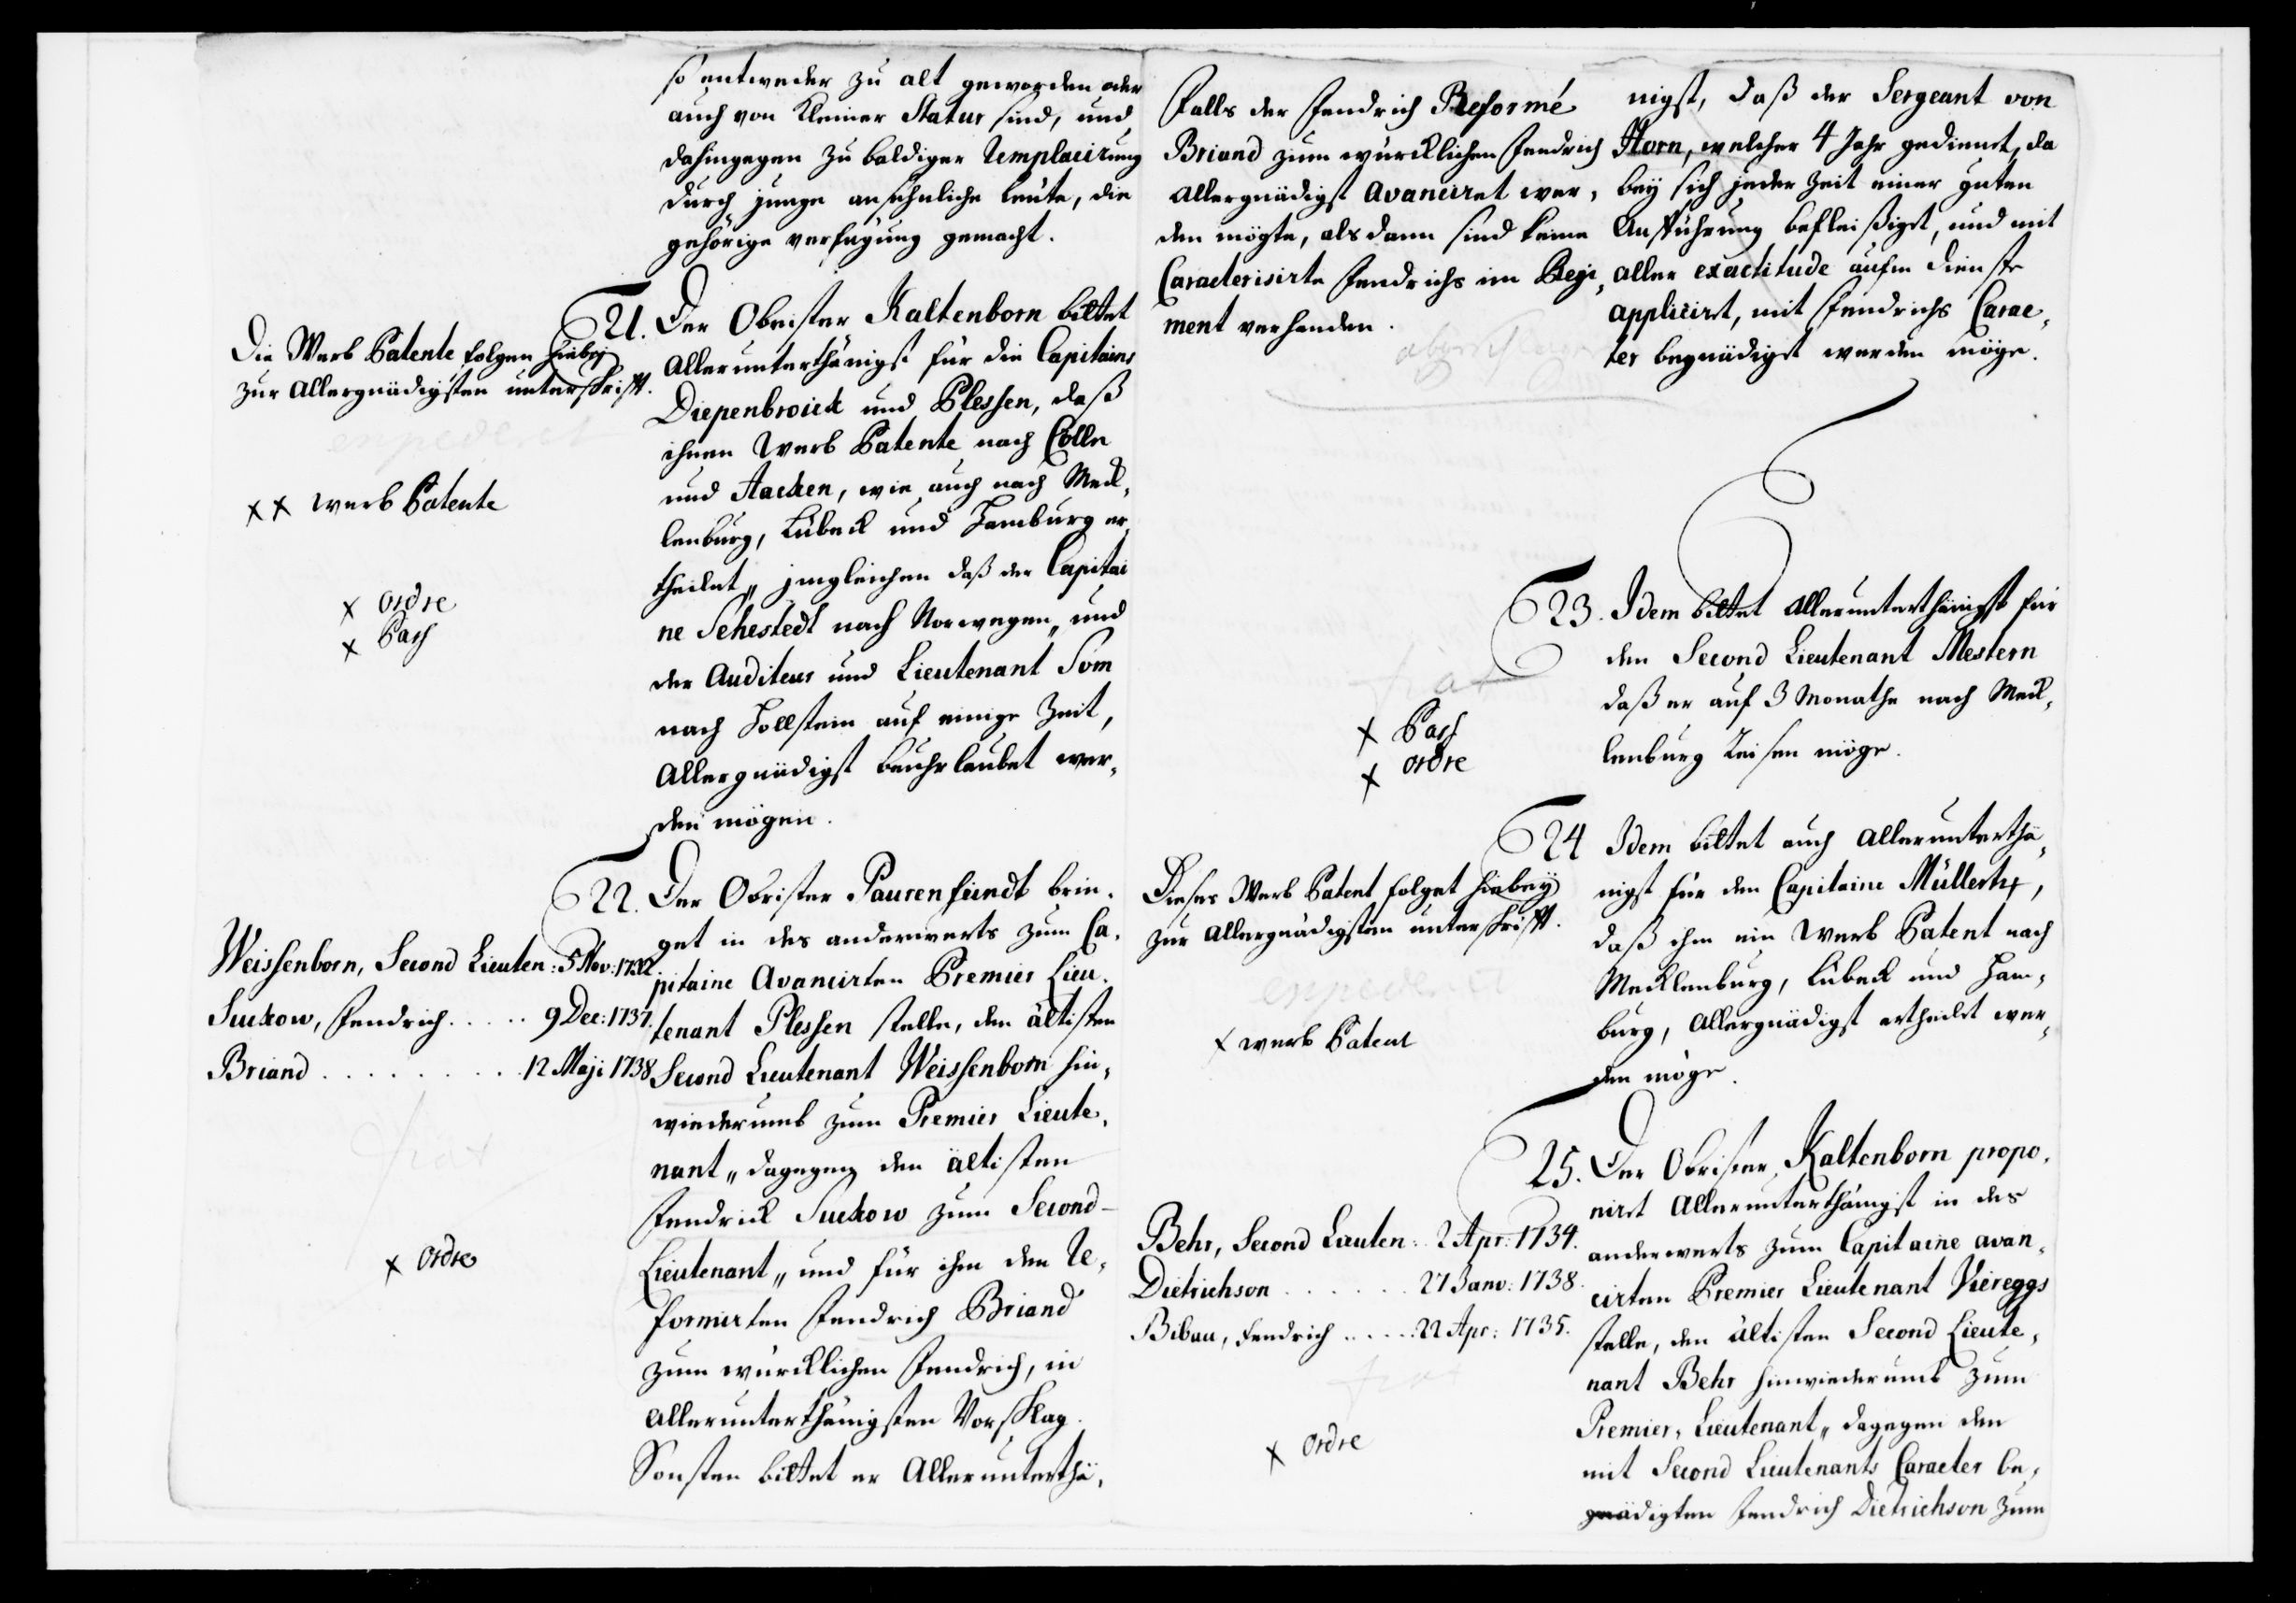 so entweder zu alt geworden oder
auch von kleiner Statur sind, und
dahingegen zu baldiger Remplacirung
durch junge ansehnliche leute, die
gehörige verfügung gemacht.
21. Der Obrister Kaltenborn bittet
Allerunterthänigst für die Capitains
Diepenbroick und Plessen, daß
ihnen Werb Patente nach Cölln
und Aacken, wie auch nach Meck,
lenburg, Lübeck und Hamburg er,
theilet„ imgleichen daß der Capitai
ne Sehestedt nach Norwegen„ und
der Auditeur und Lieutenant Som
nach Hollstein auf einige Zeit,
Allergnädigst beuhrlaubet wer,
den mögen.
Die Werb Patente folgen hiebey
zur Allergnädigsten unterschrifft.
expederet
xx werb Patente
x ordre
x Pass
22. Der Obrister Paurenfeindt brin,
get in des anderwerts zum Ca,
pitaine Avancirten Premier Lieu,
tenant Plessen stelle, den ältisten
Second Lieutenant Weissenborn hin,
wiederumb zum Premier Lieute,
nant„ dagegen den ältisten
Fendrick Suckow zum Second-
Lieutenant„ und für ihm den Re,
formirten Fendrich Briand
zum würcklichen Fendrich, in
Allerunterthänigsten Vorschlag.
Sonsten bittet er Allerunterthä,
Weissenborn, Second Lieuten: 5 Nov: 1732.
Suckow, Fendrich ..... 9 Dec: 1737.
Briand ......... 12 Maji 1738
fiat
x ordre
Falls der Fendrich Reformé
Briand zum würcklichen Fendrich
Allergnädigst Avanciret wer,
den mögte, alsdann sind keine
Caracterisirte Fendrichs im Regi,
ment verhanden.
nigst, daß der Sergeant von
Horn, welcher 4 Jahr gedienet, da
bey sich jeder Zeit einer guten
Aufführung befleißiget, und mit
aller exactitude aufm dienste
appliciret, mit Fendrichs Carac,
ter begnädiget werden möge.
23. Idem bittet allerunterthänigst für
den Second Lieutenant Mestern
daß er auf 3 Monathe nach Meck,
lenburg Reisen möge.
fiat
x Pass
x ordre
24 Idem bittet auch allerunterthä,
nigst für den Capitaine Müllertz,
daß ihm ein Werb Patent nach
Mecklenburg, Lübeck und Ham,
burg, Allergnädigst ertheilet wer,
den möge.
Dieses Werb Patent folget hiebey
zur Allergnädigsten unterschrifft.
expederet
x werb Patent
25. Der Obrister Kaltenborn propo,
nirt Allerunterthänigst in des
anderwerts zum Capitaine avan,
cirten Premier Lieutenant Viereggs
stelle, den ältisten Second Lieute,
nant Behr hinwiederumb zum
Premier, Lieutenant„ dagegen den
mit Second Lieutenants Caracter be,
gnädigten Fendrich Dietrichson zum
Behr, Second Lieuten: 2 Apr: 1734.
Dietrichson ...... 27 Janv: 1738.
Bibau, Fendrich ..... 22 Apr: 1735.
fiat
x ordre